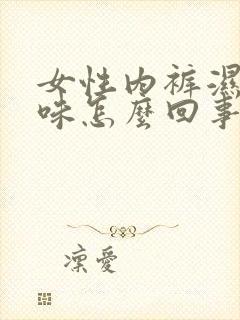 女性内裤濕
味怎麼回事
凜愛